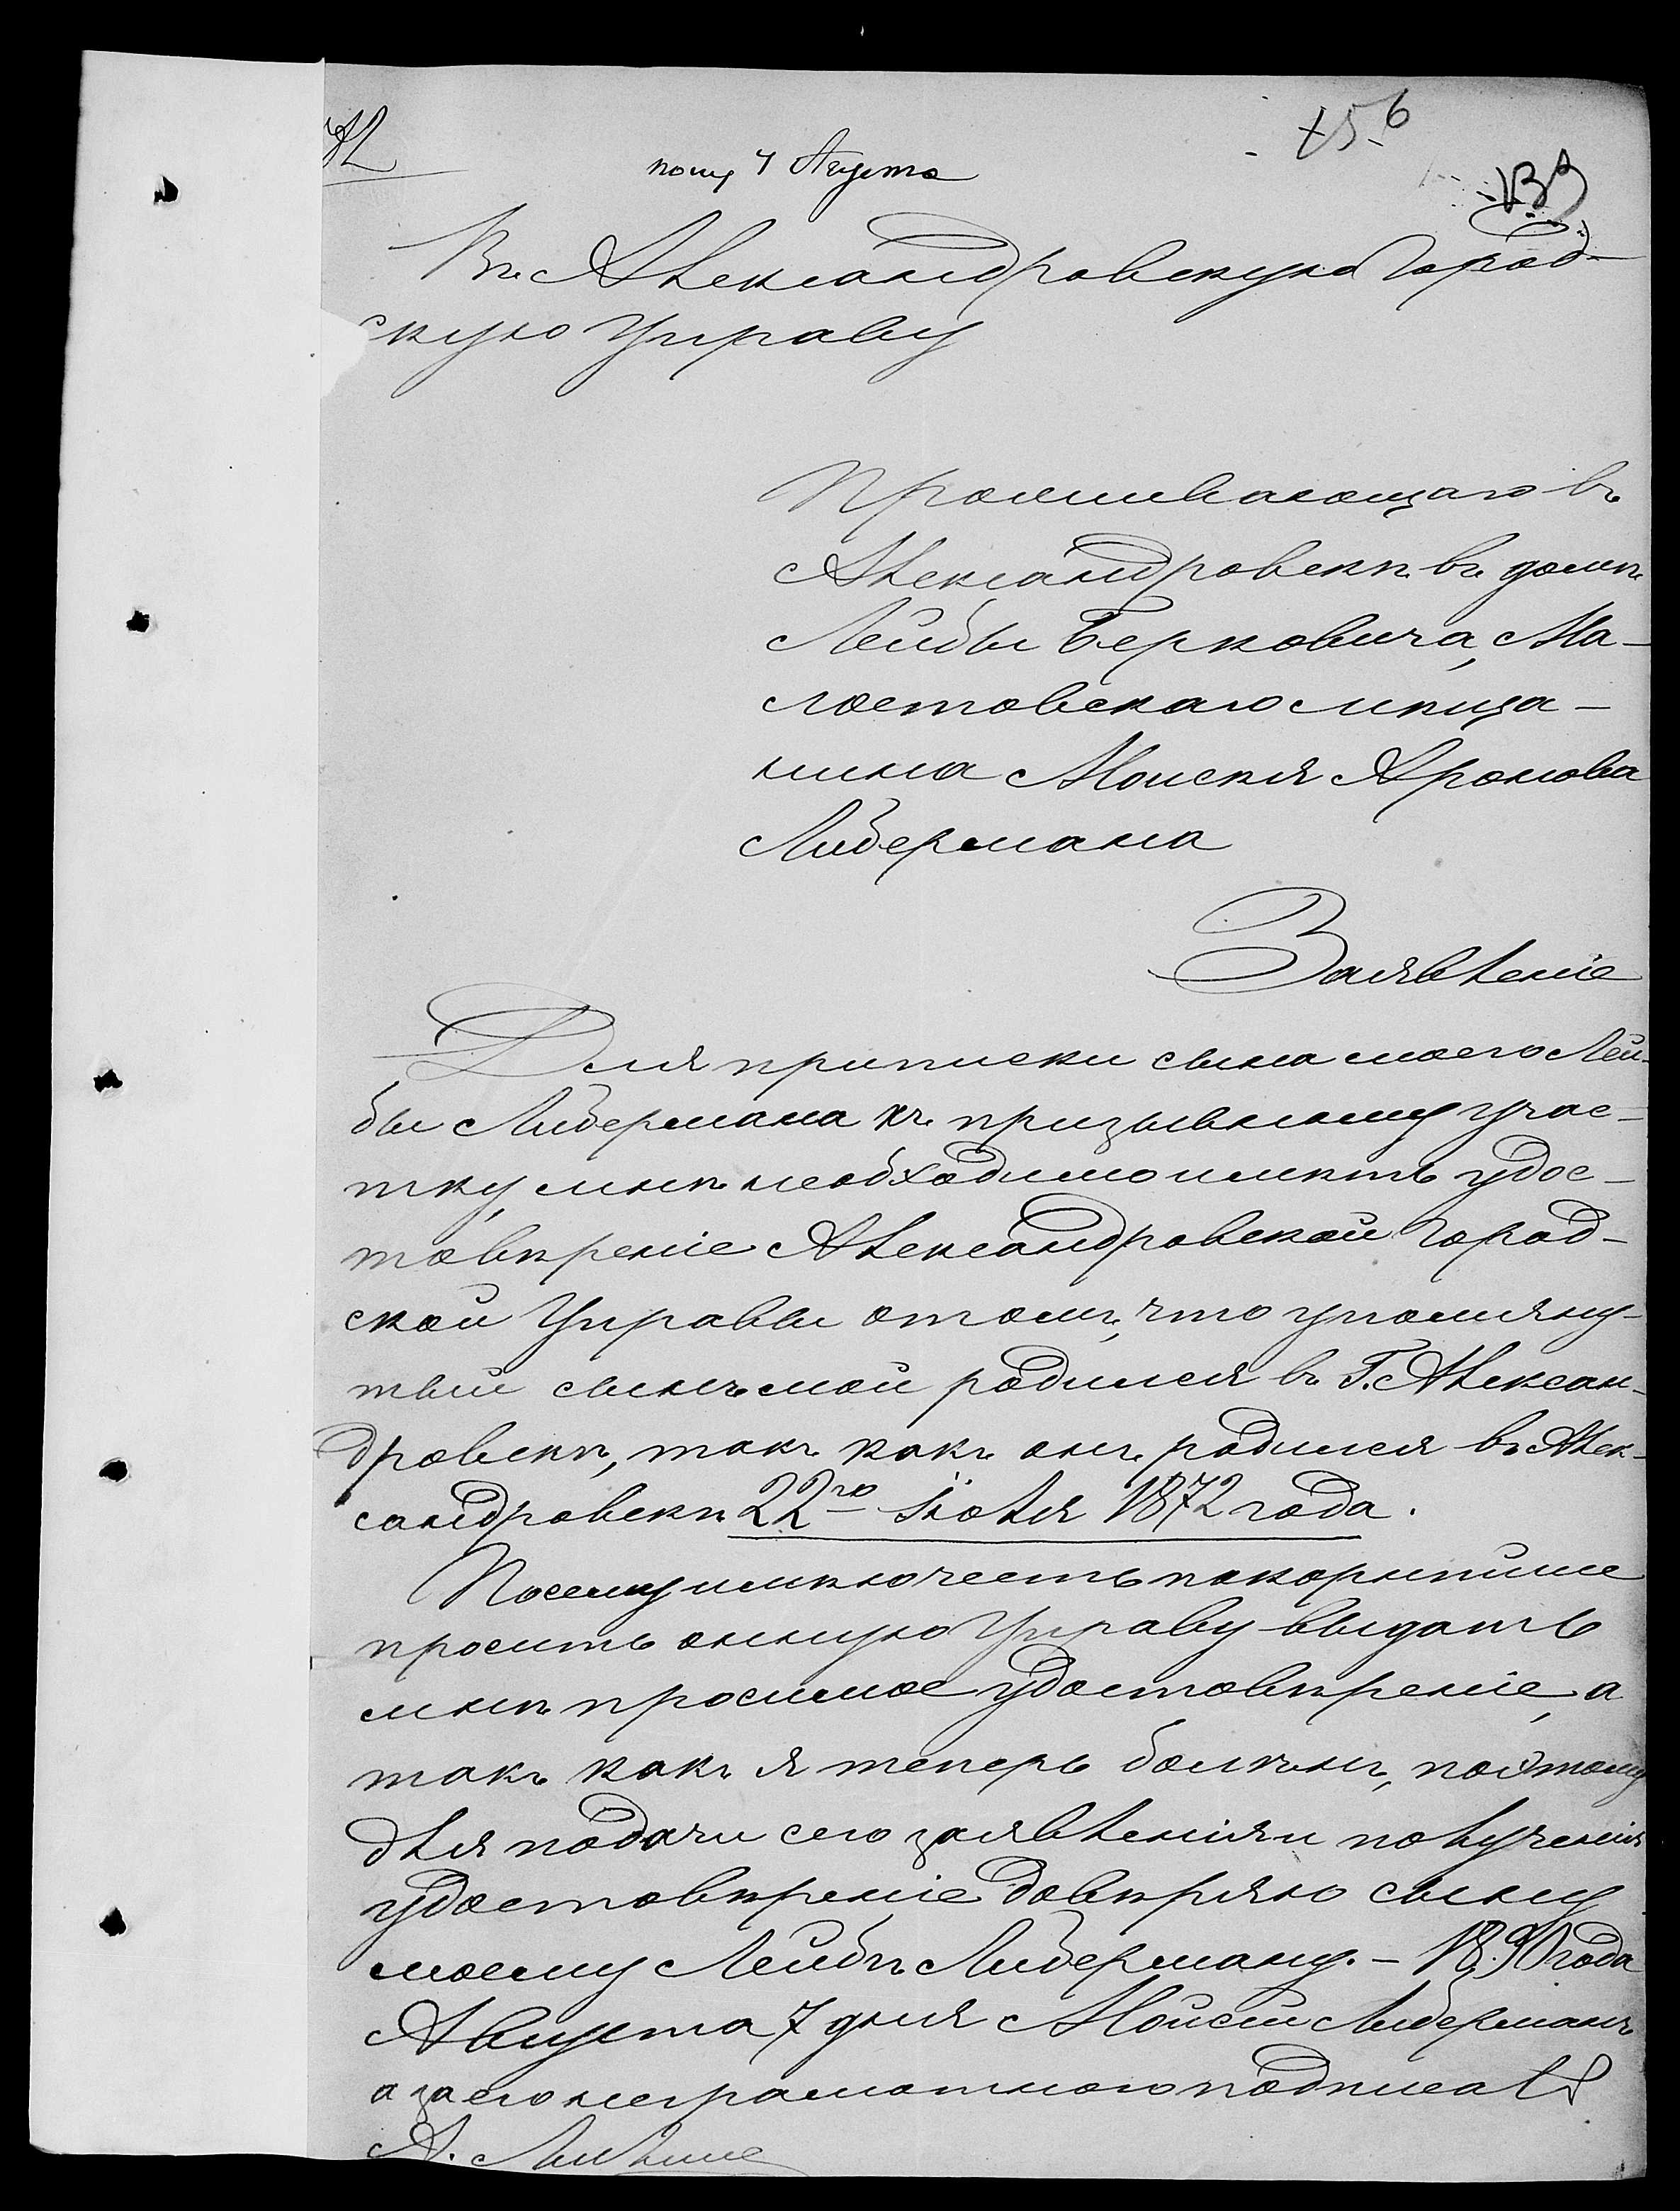 156
пошу 7 Августа
Въ Александровскую Город-
скую Управу
Проживающаго въ
Александровскѣ въ домѣ
Лейбы Берковича, Ма-
лостовскаго мѣща-
нина Моисея Аронова
Либермана
Заявленіе
Для приписки сына моего Лей-
бы Либермана къ призывному учас-
тку, мнѣ необходимо имѣть удос-
товѣреніе Александровской Город-
ской Управы отомъ, что упомяну-
тый сынъ мой родился въ Г. Алексан-
дровскѣ, такъ какъ онъ родился въ Алек-
сандровскѣ 22го Іюля 1872 года.
Посему имѣю честь покорнѣйше
просить оную Управу выдать
мнѣ просимое удостовѣреніе, а
такъ какъ я теперь боленъ, поэтому
для подачи сего заявленія и полученія
удостовѣреніе довѣряю сыну
моему Лейбѣ Либерману. - 1890 года
Августа 7 дня Мойсей Либерманъ
а за его неграмотного подписалъ
А.